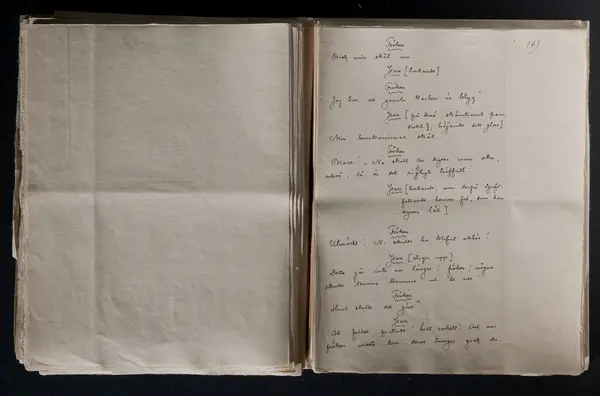 16)
Fröken
Drick min skål nu!
Jean [tvekande]
Fröken
Jag tror att gamla karlen är blyg!
Jean [på knä, skämtsamt paro-
diskt; höjande sitt glas]
Min herskarinnas skål!
Fröken
Bravo! – Nu skall du kyssa min sko,
också, så är det riktigt träffadt.
Jean [tvekande, men derpå djerft
fattande hennes fot, som han
kysser lätt]
Fröken
Utmärkt! Ni skulle ha blifvit aktör!
Jean [stiger upp]
Detta går inte an längre! fröken; någon
skulle komma ut se oss.
Fröken
Hvad skulle det göra?
Jean
Att folket pratade! helt enkelt! Och om
fröken visste hur deras tungor gick der